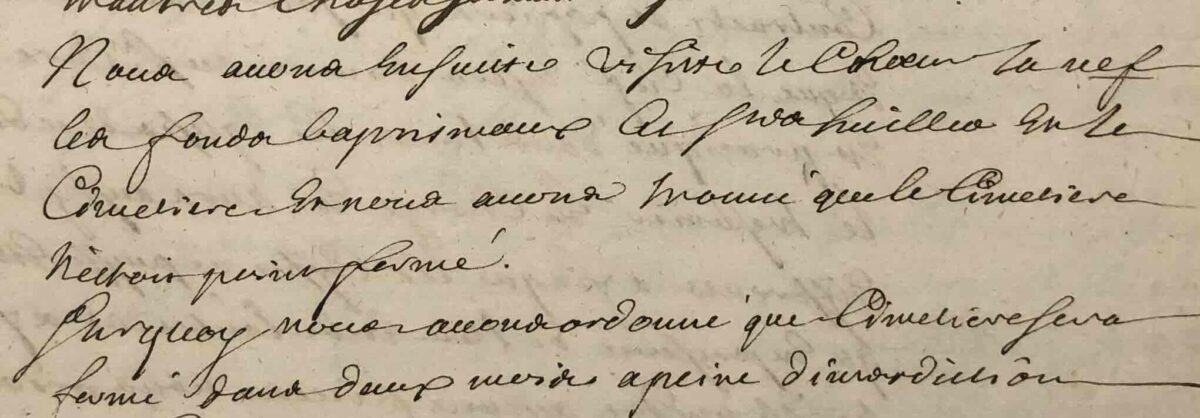 Nous auons Ensuitte visitte le Choeur la nef
les fonds baptismaux Et le
Cimetiere Et nous auons trouué que le Cimetiere
N'estoit point fermé.
Surquoy nous auons ordonné que Cimetiere sera
fermé dans deux mois a peine d'interdiction